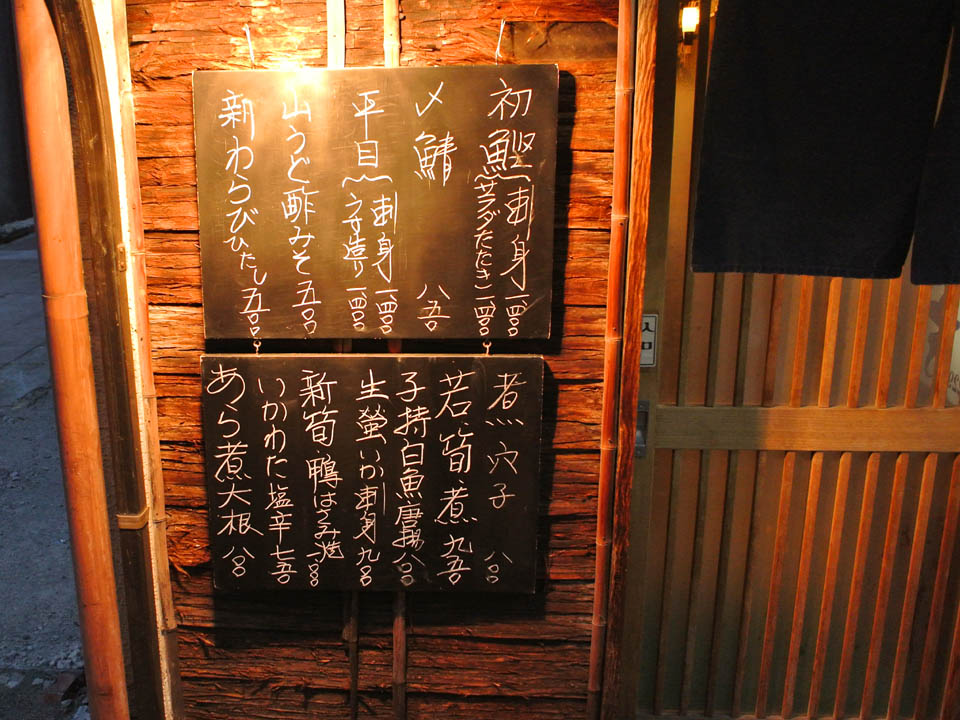 初鰹刺身 一、四〇〇
サラダたたき 一、四〇〇
〆鯖 八五〇
平目刺身 一、四〇〇
うす造り 一、四〇〇
山うど酢みそ 五〇〇
新わらびひたし 五〇〇
煮穴子 八〇〇
若筍煮 九五〇
子持白魚唐揚 八〇〇
生螢いか刺身 九〇〇
新筍・鴨はさみ焼 一、〇〇〇
いかわた塩辛 七五〇
あら煮大根 八〇〇
入口